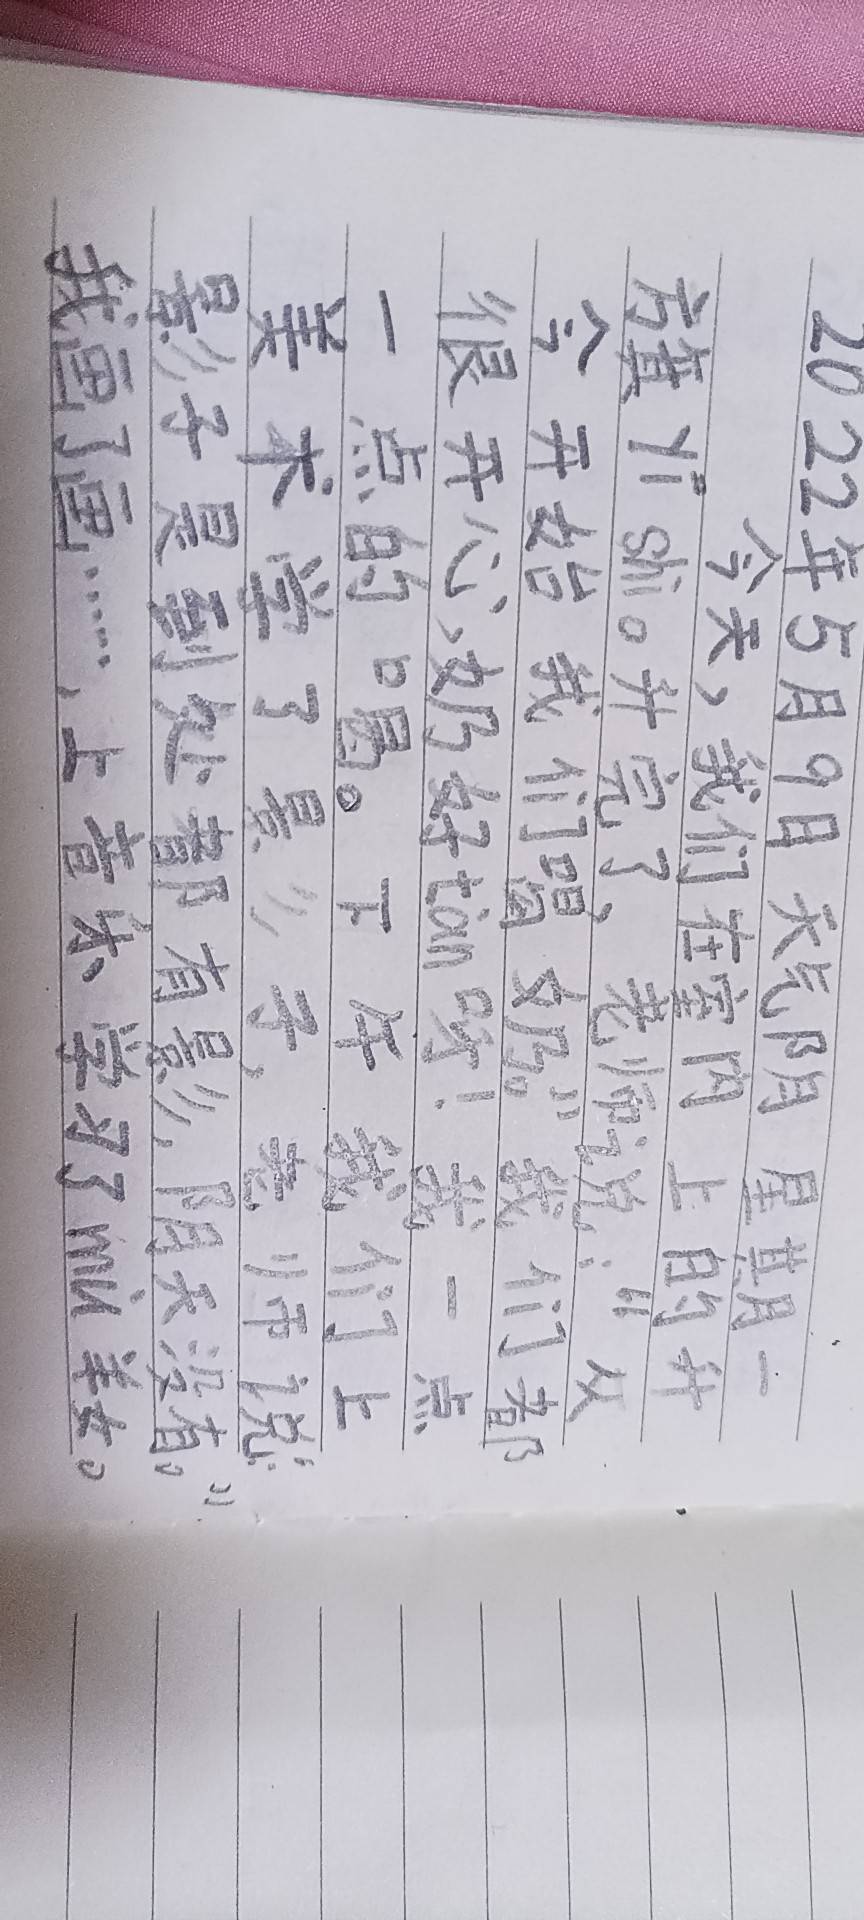 2022年5月9日 天气阴 星期一
今天，我们在室内上的升
旗yi shi。升完了，老师说：“从
今开始我们喝奶。”我们都
很开心，奶好tian呀！我一点
一点的喝。下午我们上
美术学了影子，老师说“
影子是到处都有影，阴天没有。”
我画了画……，上音乐学习了miu美女。